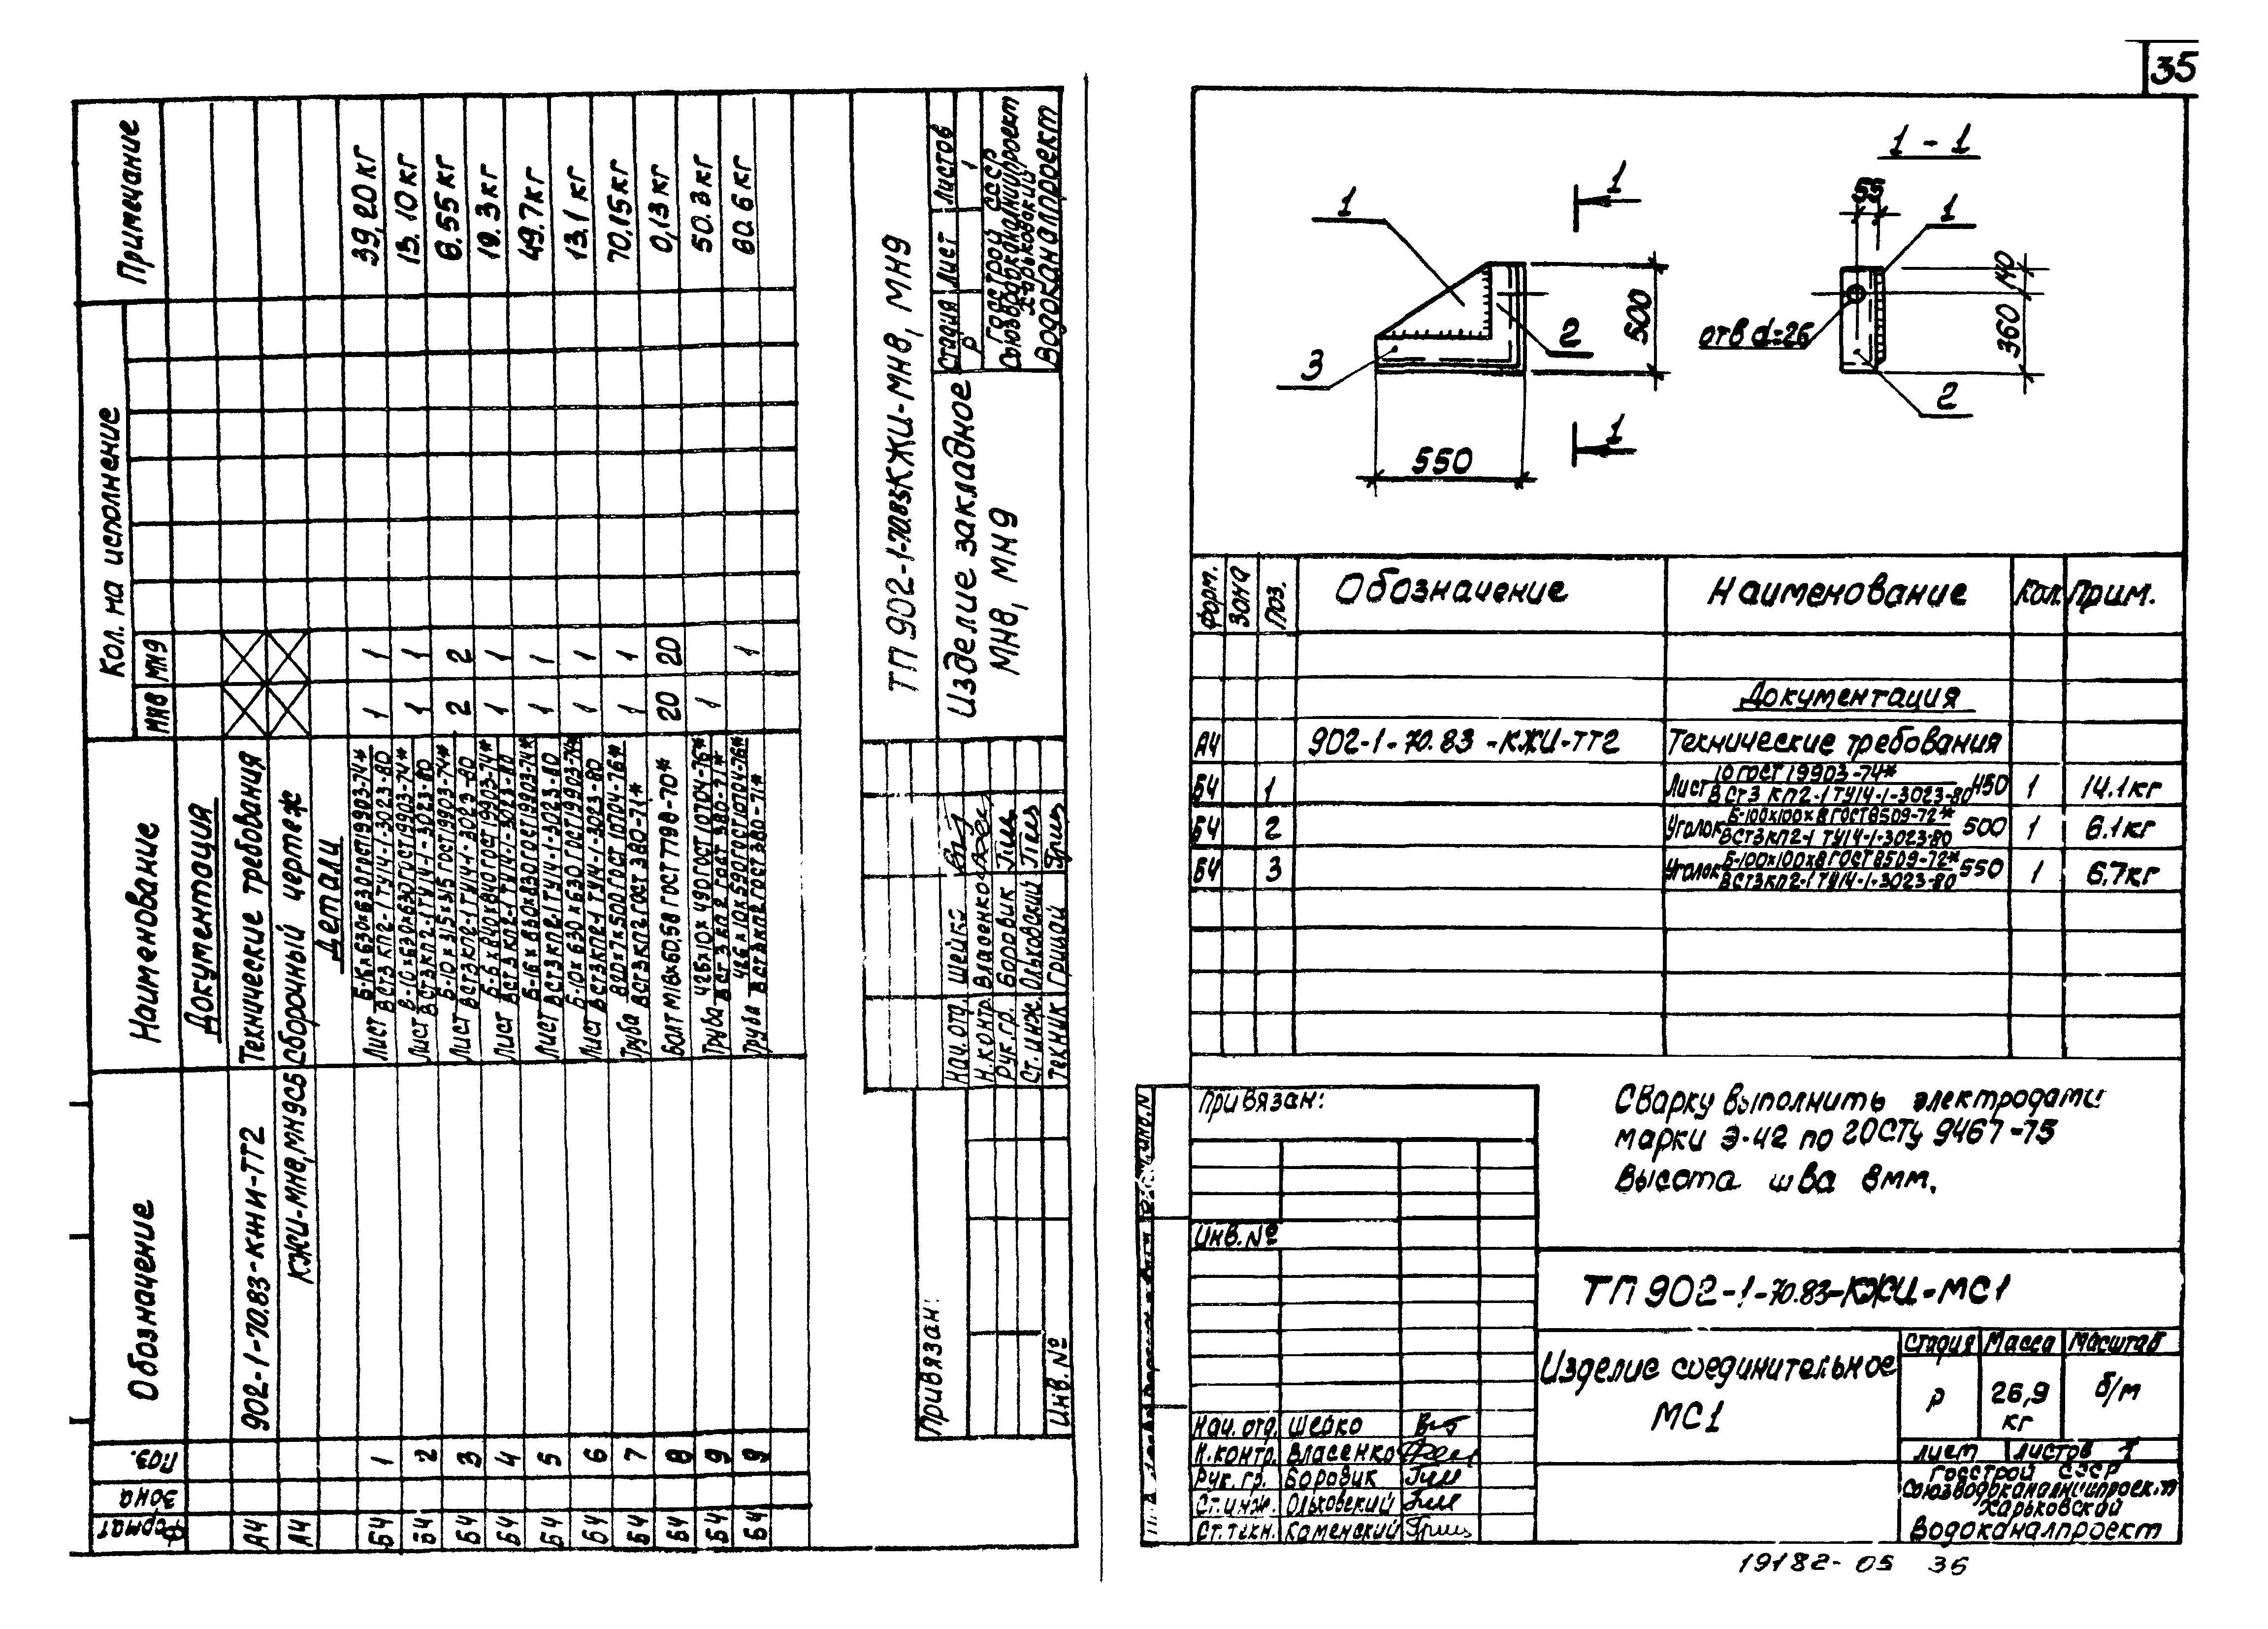 35
Формат
Зона
Поз.
Обозначение
Наименование
Кол. на исполнение
МН8 МН9
Примечание
Документация
А4 902-1-70.83-КЖИ-ТТ2 Технические требования
А4 КЖИ-МН8,МН9СБ Сборочный чертеж
Детали
Б4 1 Лист Б-16×630×630 ГОСТ 19903-74* / ВСТ3 КП2-1 ТУ14-1-3023-80 1 1 39,20 кг
Б4 2 Лист Б-10×630×630 ГОСТ 19903-74* / ВСТ3 КП2-1 ТУ14-1-3023-80 1 1 13.10 кг
Б4 3 Лист Б-10×315×315 ГОСТ 19903-74* / ВСТ3КП2-1 ТУ14-1-3023-80 2 2 6.55 кг
Б4 4 Лист Б-6×840×840 ГОСТ 19903-74* / ВСТ3 КП2-1 ТУ14-1-3023-80 1 1 19.3 кг
Б4 5 Лист Б-16×830×830 ГОСТ 19903-74* / ВСТ3КП2-1 ТУ14-1-3023-80 1 1 49.7 кг
Б4 6 Лист Б-10×630×630 ГОСТ 19903-74* / ВСТ3КП2-1 ТУ14-1-3023-80 1 1 13.1 кг
Б4 7 Труба 820×7×500 ГОСТ 10704-76* / ВСТ3КП2 ГОСТ 380-71* 1 1 70,15 кг
Б4 8 Болт М18×60,58 ГОСТ 7798-70* 20 20 0,13 кг
Б4 9 Труба 426×10×490 ГОСТ 10704-76* / ВСТ3КП2 ГОСТ 380-71* 1 50.3 кг
Б4 9 Труба 426×10×590 ГОСТ 10704-76* / ВСТ3КП2 ГОСТ 380-71* 1 60.6 кг
ТП 902-1-70.83КЖИ-МН8, МН9
Изделие закладное
МН8, МН9
Стадия Лист Листов
Р 1
Госстрой СССР
Союзводоканалниипроект
Харьковский
Водоканалпроект
Нач. отд. Шейко
Н.контр. Власенко
Рук.гр. Боровик
Ст.инж. Ольховский
Техник Грицай
Привязан:
Инв. №
1
2
3
1
1
500
550
1-1
55
1
140
360
отв d=26
2
Форм.
Зона
Поз.
Обозначение
Наименование
Кол.
Прим.
Документация
А4 902-1-70.83-КЖИ-ТТ2 Технические требования
Б4 1 Лист 10 ГОСТ 19903-74* / ВСТ3 КП2-1 ТУ14-1-3023-80 450 1 14.1 кг
Б4 2 Уголок Б-100×100×8 ГОСТ 8509-72* / ВСТ3КП2-1 ТУ14-1-3023-80 500 1 6.1 кг
Б4 3 Уголок Б-100×100×8 ГОСТ 8509-72* / ВСТ3КП2-1 ТУ14-1-3023-80 550 1 6,7 кг
Сварку выполнить электродами
марки Э-42 по ГОСТу 9467-75
Высота шва 8мм.
Привязан:
Инв. №
ТП 902-1-70.83-КЖИ-МС1
Изделие соединительное
МС1
Стадия Масса Масштаб
Р 26,9 кг б/м
Лист Листов 1
Госстрой СССР
Союзводоканалниипроект
Харьковский
Водоканалпроект
Нач. отд. Шейко
Н.контр. Власенко
Рук. гр. Боровик
Ст.инж. Ольховский
Ст.техн. Каменский
19182-05 36